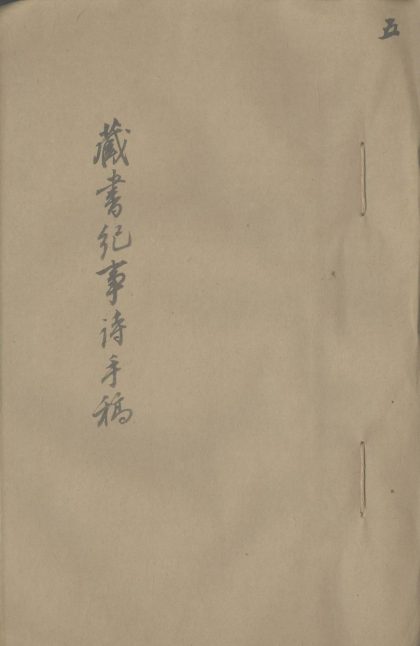 五
藏書纪事诗手稿